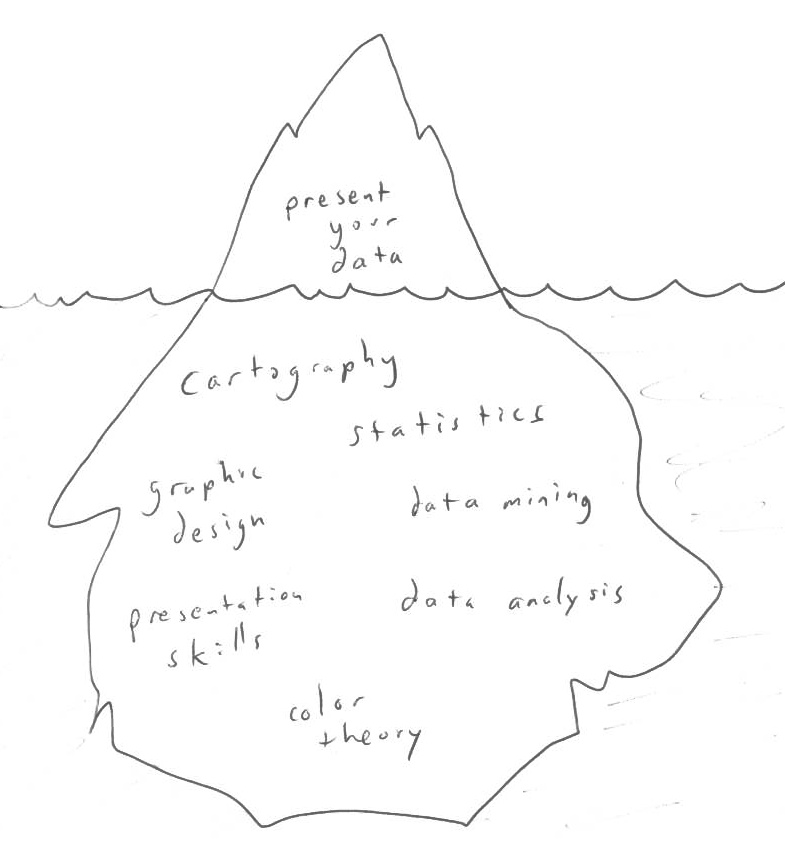 present
your
data
cartography
statistics
graphic
design
data mining
presentation
skills
data analysis
color
theory